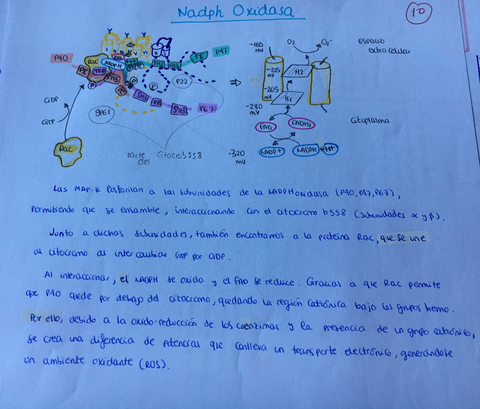 Nadph Oxidasa
10
P40
Rac
NADPH
P47
P22
P67
GDP
GTP
gp91
Rac
parte del Citocromo b558
-160 mV
O2
O2-
ESPACIO extracelular
-225 mV
H2
-265 mV
H1
-280 mV
Citoplasma
FAD
FADH2
-320 mV
NADP+
NADPH + H+
Las MAPik fosforilan a las subunidades de la NADPH oxidasa (P40, P47, P67),
permitiendo que se ensamble, interaccionando con el citocromo b558 (subunidades α y β).
Junto a dichas subunidades, también encontramos a la proteína Rac, que se une
al citocromo al intercambiar GTP por GDP.
Al interaccionar, el NADPH se oxida y el FAD se reduce. Gracias a que Rac permite
que P40 quede por debajo del citocromo, quedando la región catiónica bajo los grupos hemo.
Por ello, debido a la oxido-reducción de los coenzimas y la presencia de un grupo catiónico,
se crea una diferencia de potencias que conlleva un transporte electrónico, generándose
un ambiente oxidante (ROS).